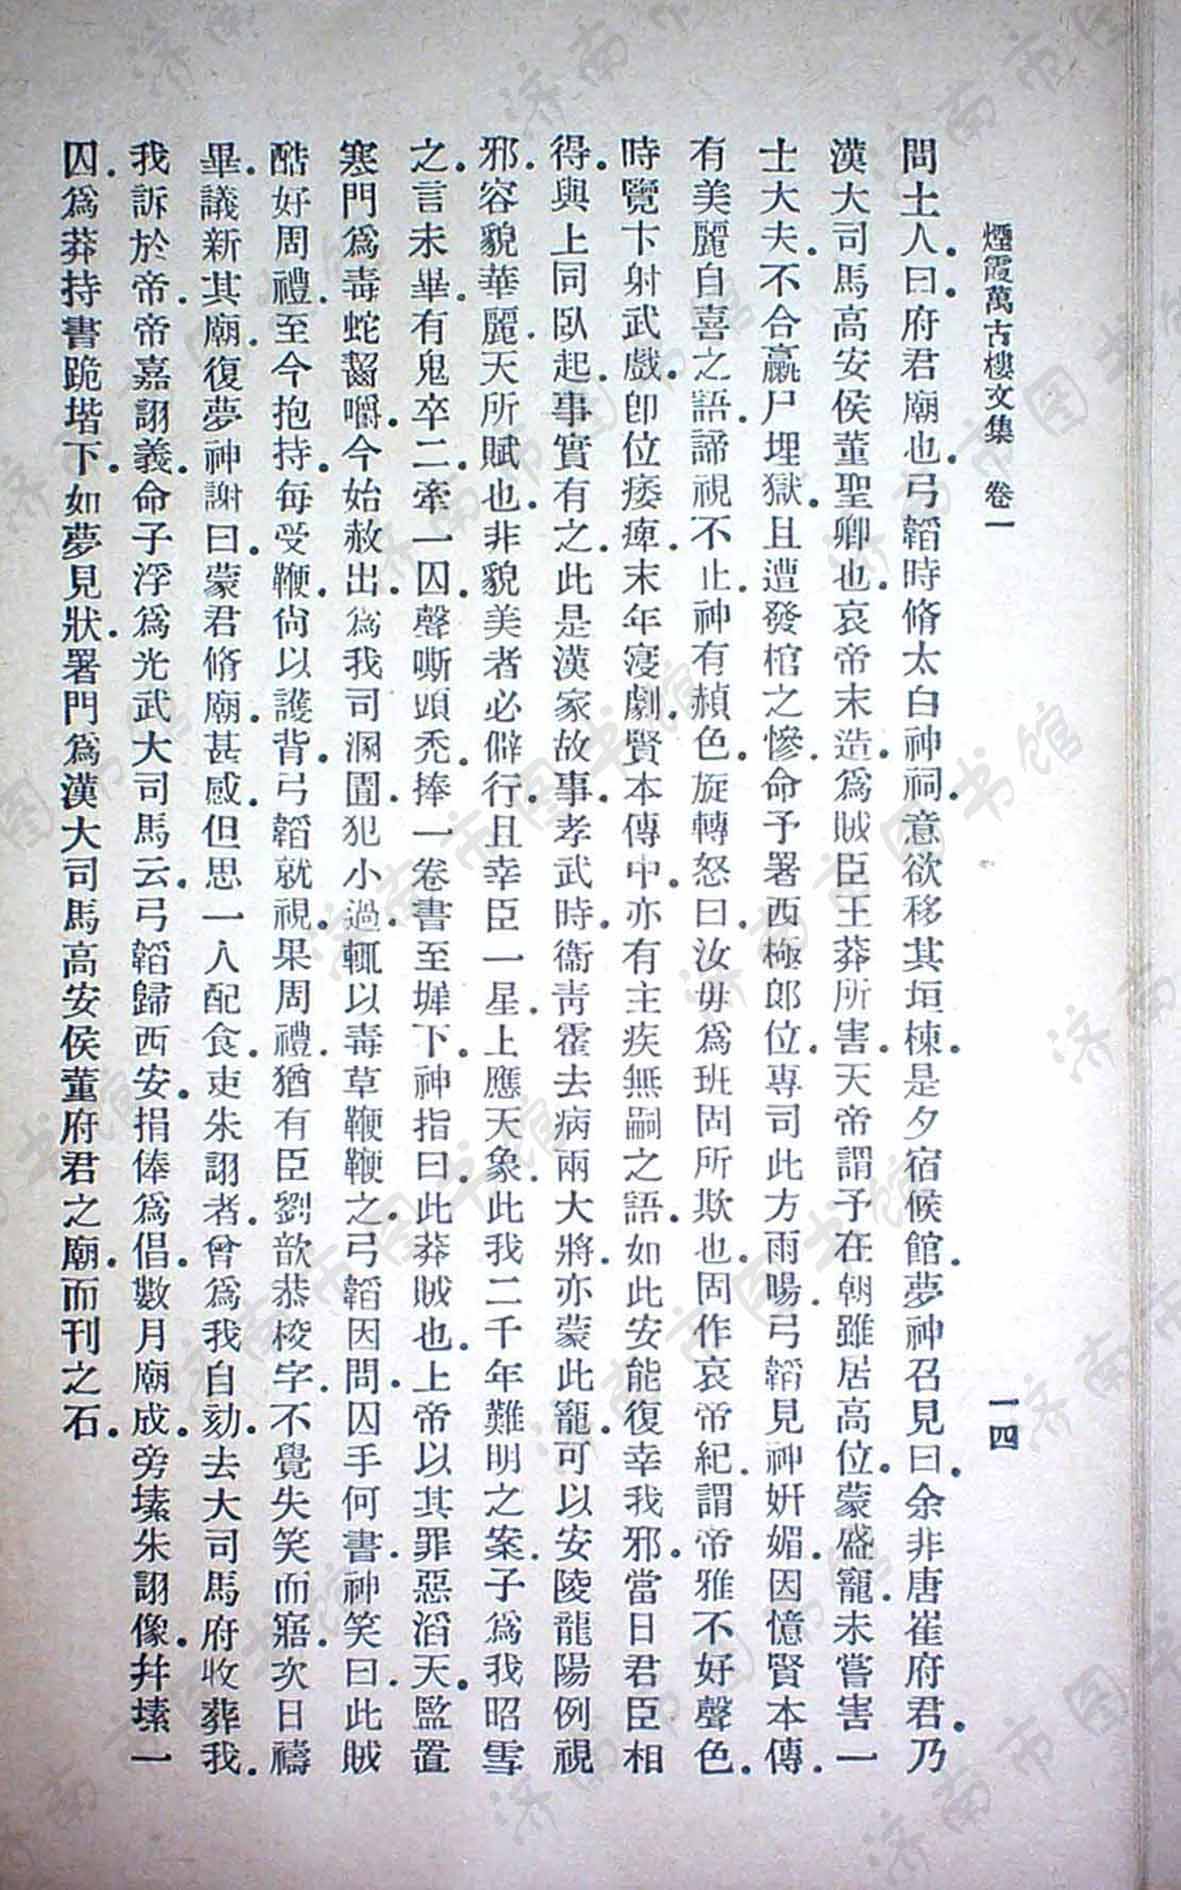 煙霞萬古樓文集 卷一 一四
問土人曰府君廟也弓韜時脩太白神祠意欲移其垣棟是夕宿候館夢神召見曰余非唐崔府君乃
漢大司馬高安侯董聖卿也哀帝末造爲賊臣王莽所害天帝謂予在朝雖居高位蒙盛寵未嘗害一
士大夫不合羸尸埋獄且遭發棺之慘命予署西極郎位專司此方雨暘弓韜見神妍媚因憶賢本傳
有美麗自喜之語諦視不止神有赬色旋轉怒曰汝毋爲班固所欺也固作哀帝紀謂帝雅不好聲色
時覽卞射武戲卽位痿痺末年寖劇賢本傳中亦有主疾無嗣之語如此安能復幸我邪當日君臣相
得與上同臥起事實有之此是漢家故事孝武時衞靑霍去病兩大將亦蒙此寵可以安陵龍陽例視
邪容貌華麗天所賦也非貌美者必僻行且幸臣一星上應天象此我二千年難明之案子爲我昭雪
之言未畢有鬼卒二牽一囚聲嘶頭禿捧一卷書至墀下神指曰此莽賊也上帝以其罪惡滔天監置
寒門爲毒蛇齧嚼今始赦出爲我司溷圊犯小過輒以毒草鞭鞭之弓韜因問囚手何書神笑曰此賊
酷好周禮至今抱持每受鞭尙以護背弓韜就視果周禮猶有臣劉歆恭校字不覺失笑而寤次日禱
畢議新其廟復夢神謝曰蒙君脩廟甚感但思一人配食吏朱詡者曾爲我自劾去大司馬府收葬我
我訴於帝帝嘉詡義命子浮爲光武大司馬云弓韜歸西安捐俸爲倡數月廟成旁塐朱詡像幷塐一
囚爲莽持書跪堦下如夢見狀署門爲漢大司馬高安侯董府君之廟而刊之石
济南市图书馆